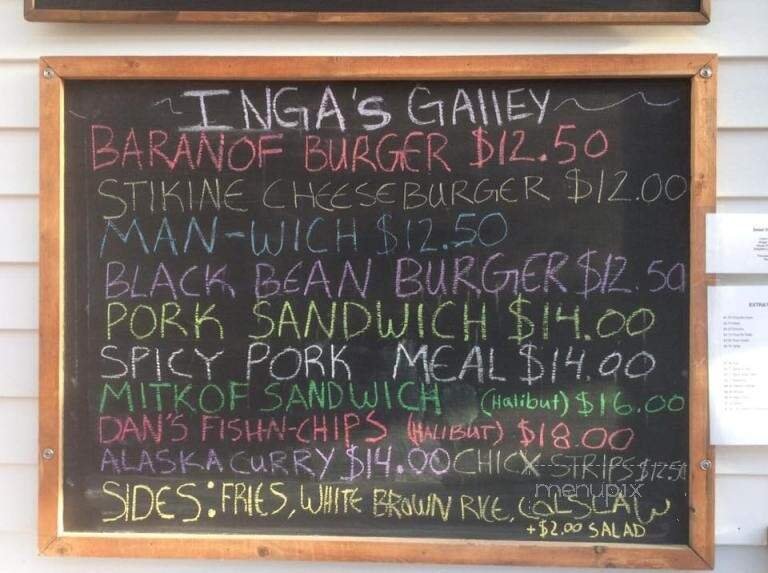 INGA'S GAllEY
BARANOF BURGER $12.50
STIKINE CHEESEBURGER $12.00
MAN-WICH $12.50
BLACK BEAN BURGER $12.50
PORK SANDWICH $14.00
SPICY PORK MEAL $14.00
MITKOF SANDWICH (Halibut) $16.00
DAN'S FISH-N-CHIPS (HALIBUT) $18.00
ALASKA CURRY $14.00 CHICK STRIPS $12.5
SIDES: FRIES, WHITE BROWN RICE, COLSLAW
+$2.00 SALAD
menupix